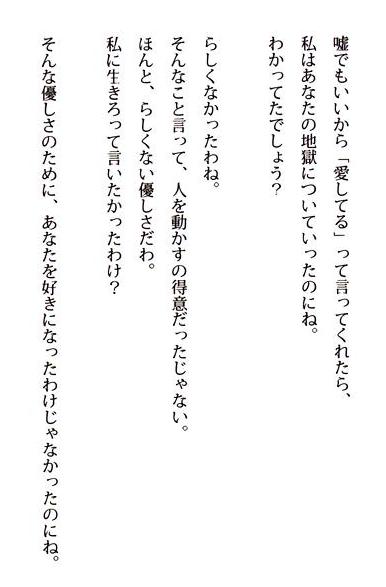 嘘でもいいから「愛してる」って言ってくれたら、
私はあなたの地獄についていったのにね。
わかってたでしょう？
らしくなかったわね。
そんなこと言って、人を動かすの得意だったじゃない。
ほんと、らしくない優しさだわ。
私に生きろって言いたかったわけ？
そんな優しさのために、あなたを好きになったわけじゃなかったのにね。